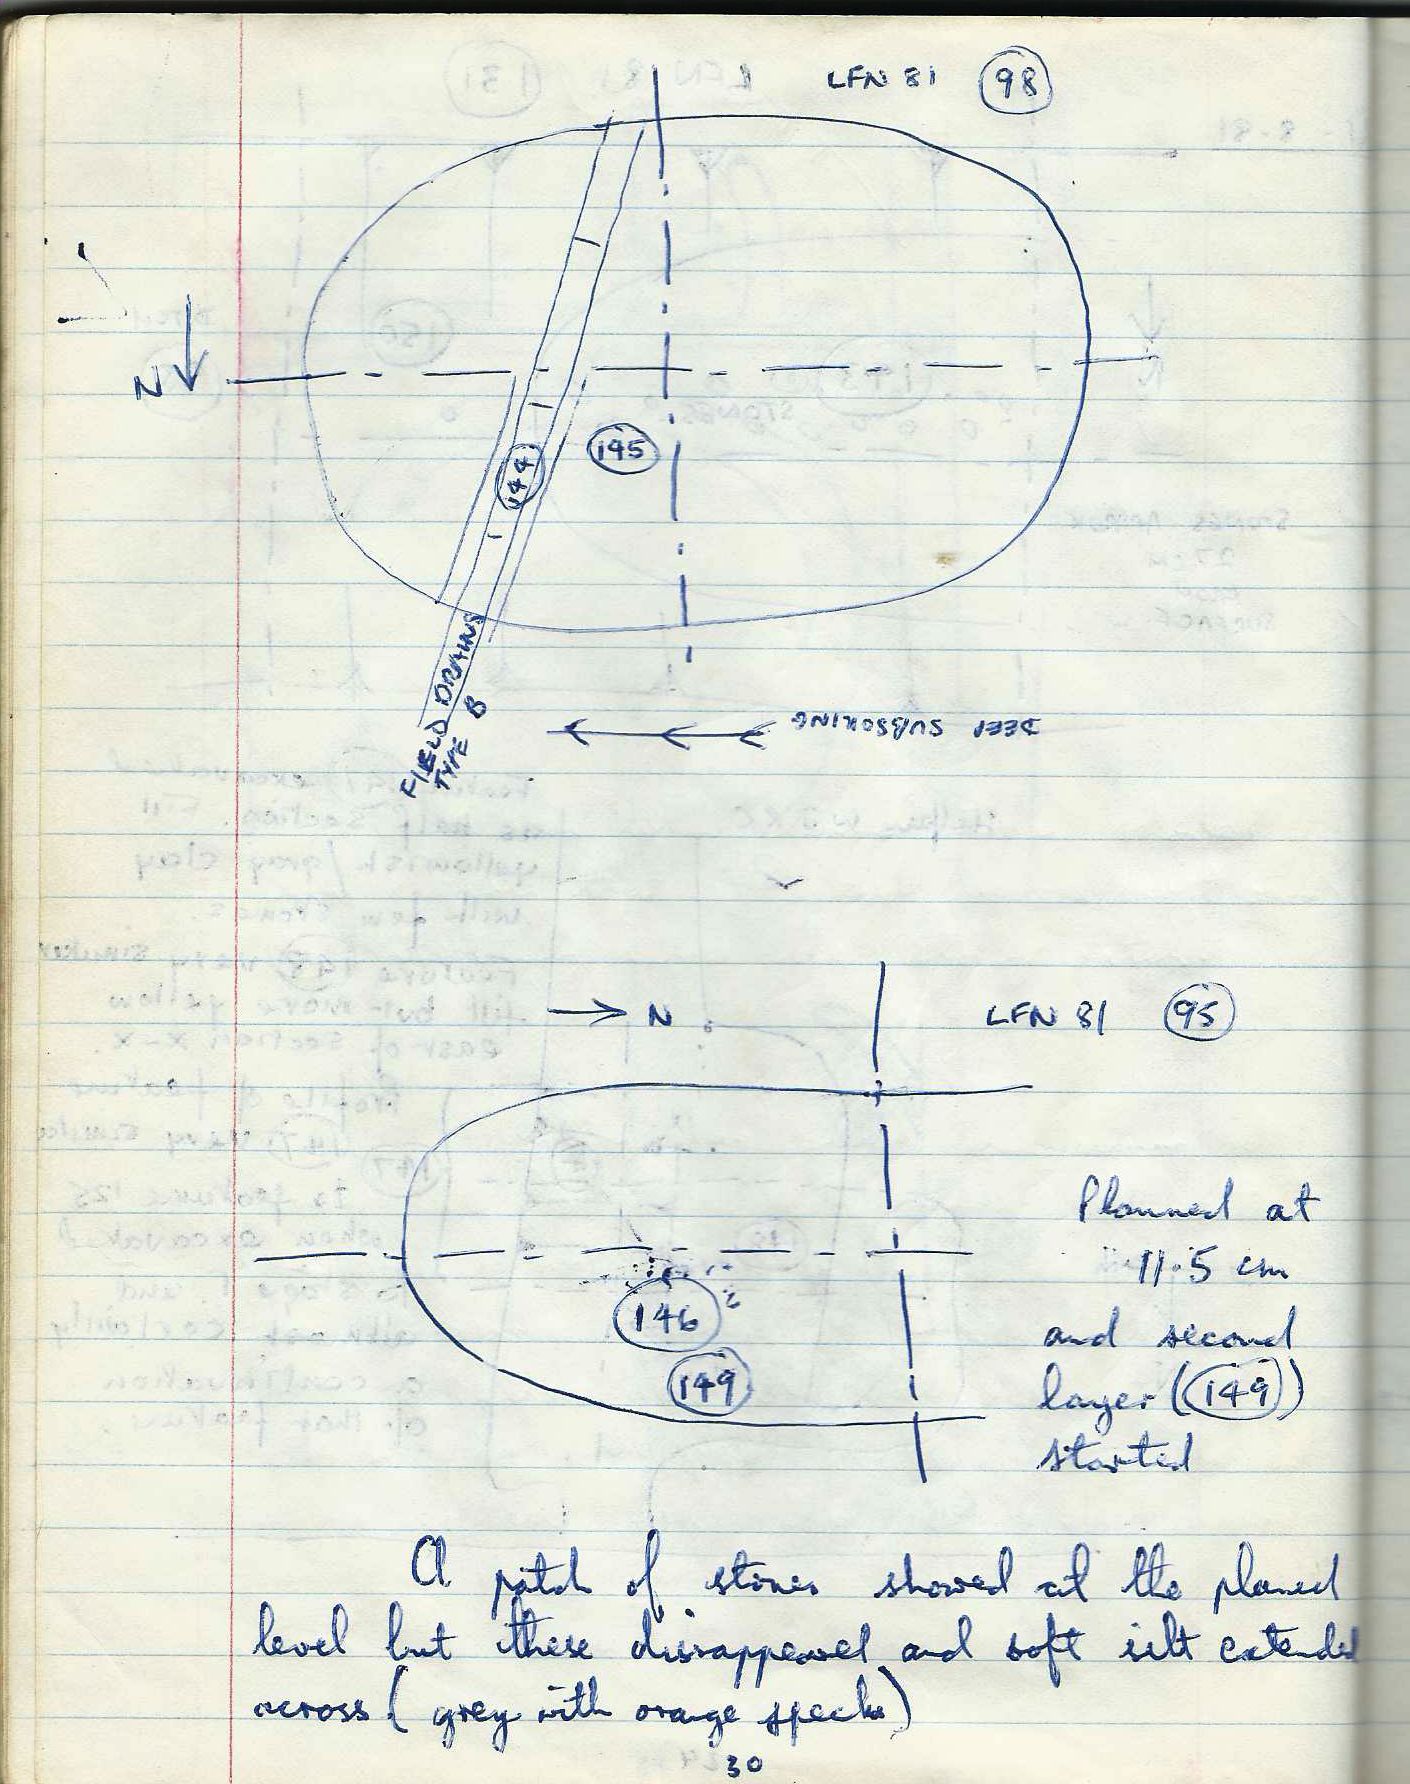 LFN 81 98
N
195
144
FIELD DRAINS
TYPE B
DEEP SUBSOILING
N
LFN 81 95
Planned at
11.5 cm
and second
layer (149)
started
146
149
A patch of stones showed at the planed
level but these dissappeared and soft silt extended
across (grey with orange specks)
30